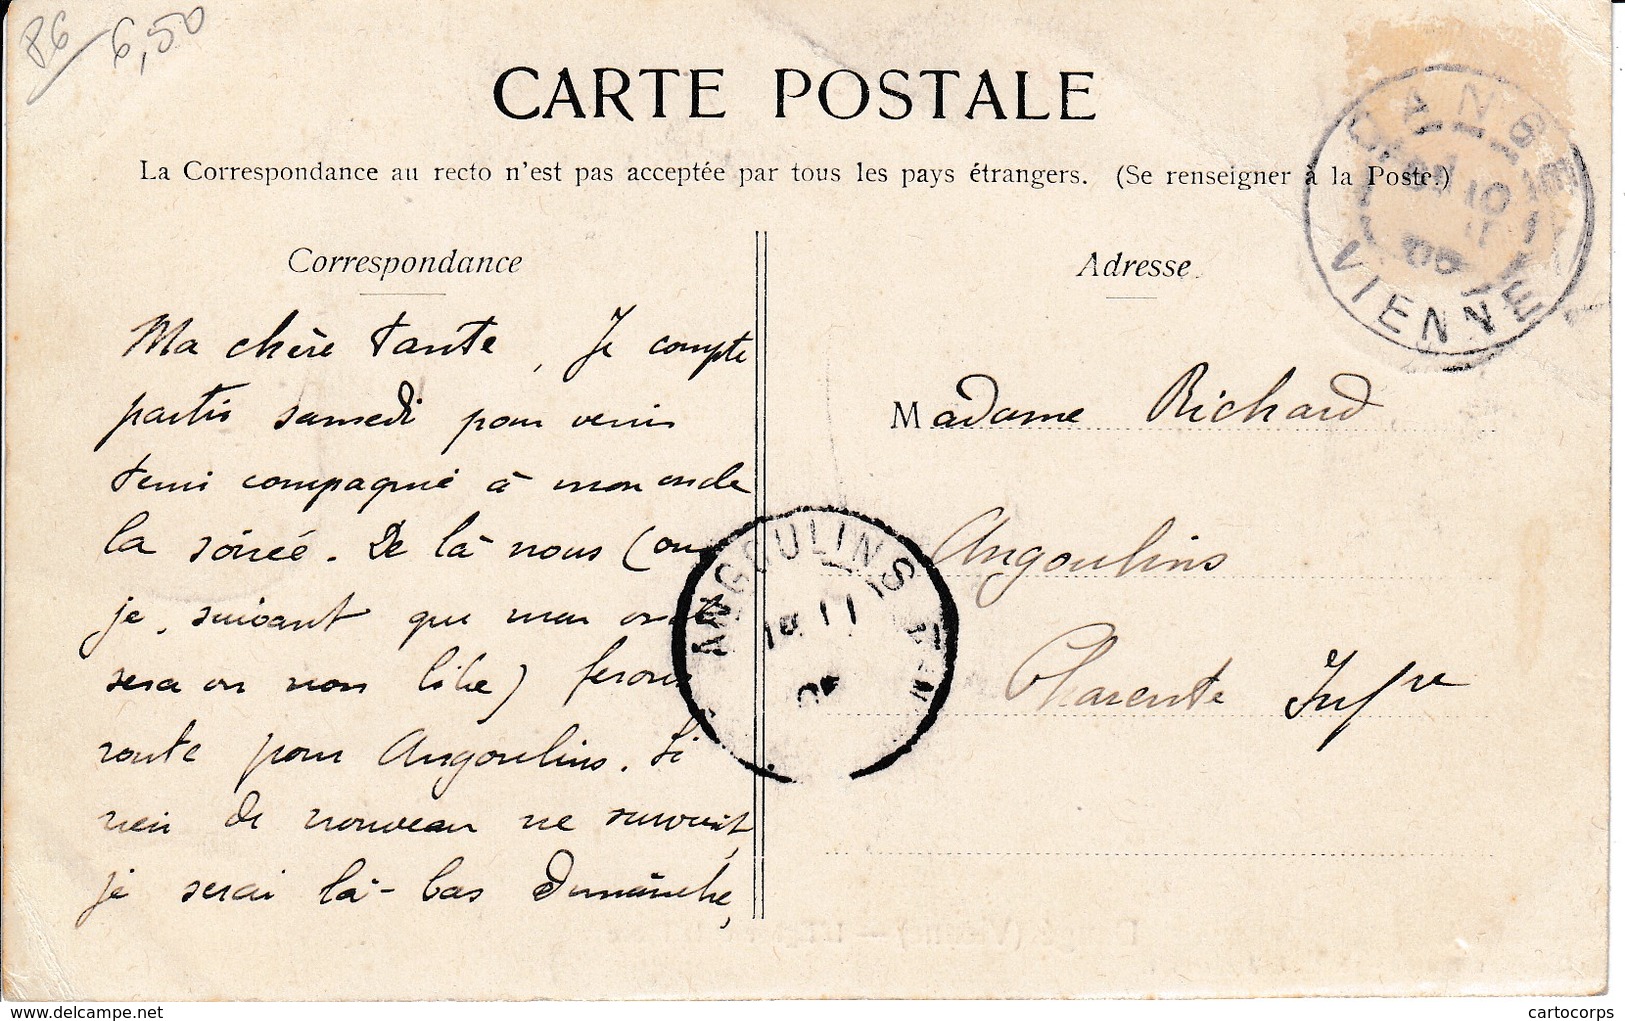 86 6,50
CARTE POSTALE
La Correspondance au recto n'est pas acceptée par tous les pays étrangers. (Se renseigner à la Poste.)
Correspondance
Ma chère tante, Je compte
partir samedi pour venir
tenir compagnie à mon oncle
la soirée. De là nous (ou
je, suivant que mon oncle
sera ou non libre) ferons
route pour Angoulins. Si
rien de nouveau ne survient,
je serai là-bas Dimanche,
Adresse
Madame Richard
Angoulins
Charente Infre
DANGE
10
VIENNE
ANGOULINS
11
delcampe.net
cartocorps